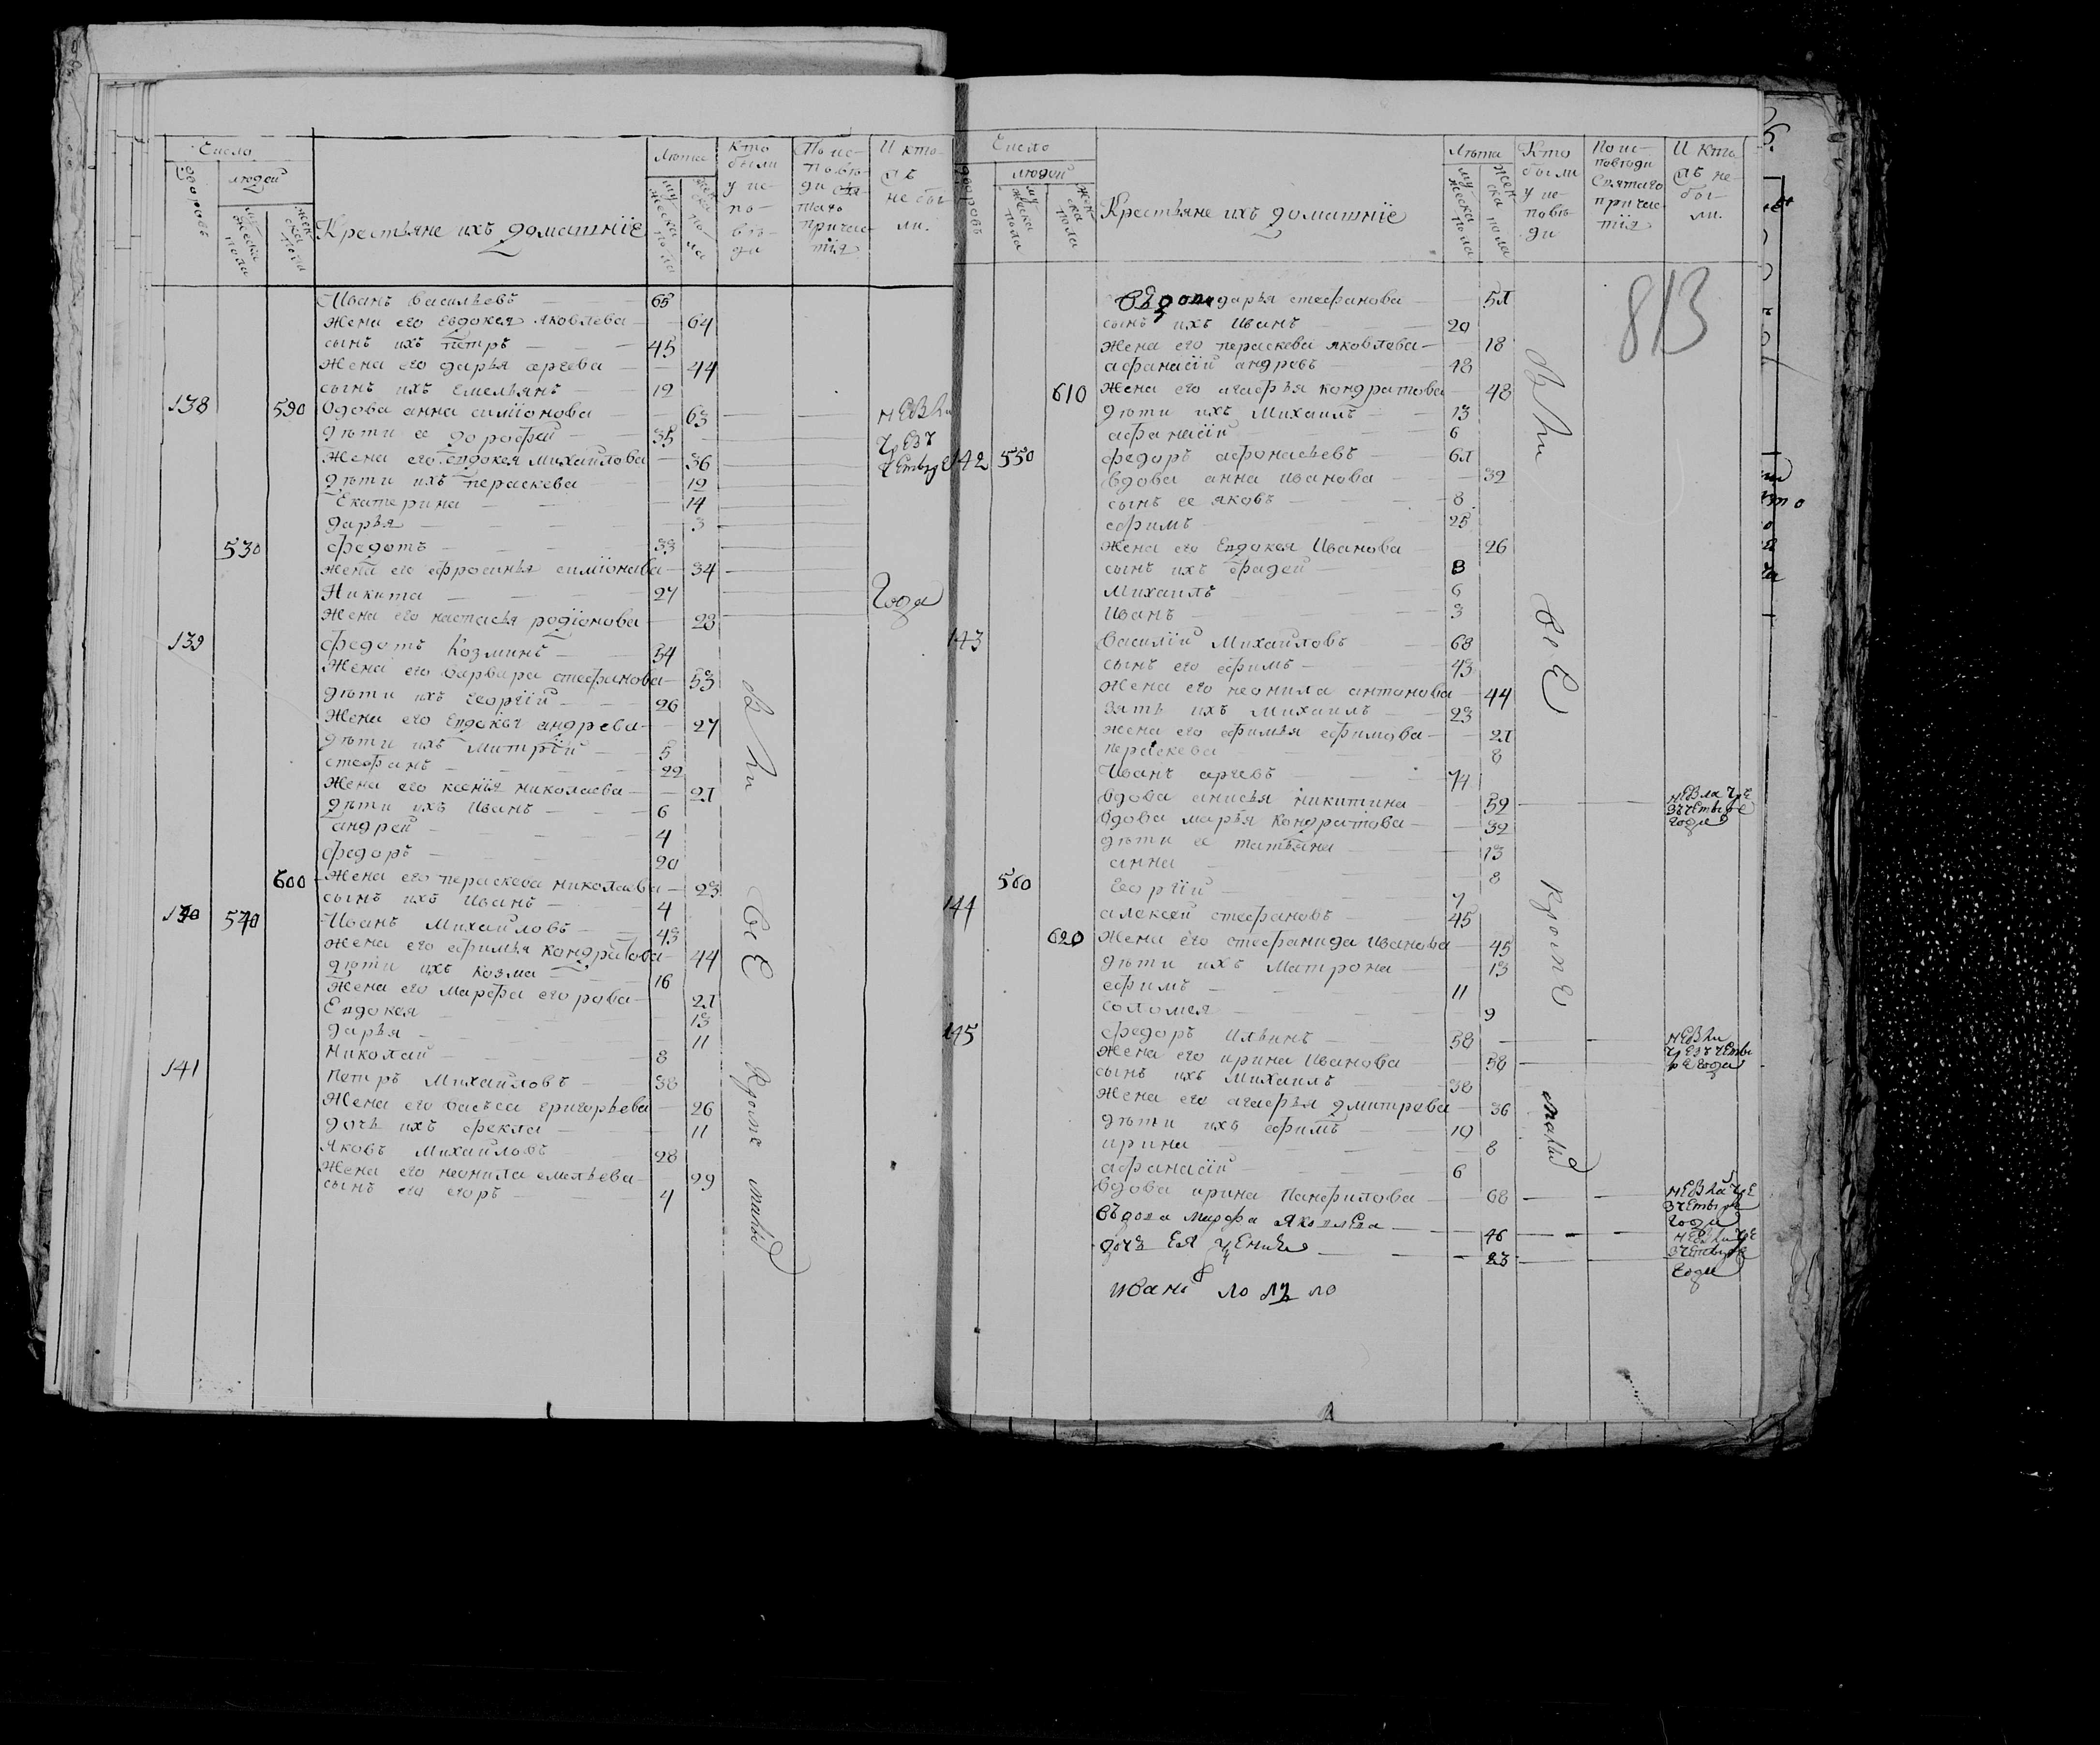 Число
дворовъ
людей
мужеска пола
женска пола
Крестьяне ихъ домашнїе
Лѣта
мужеска пола
женска пола
Кто были у исповѣди
По исповѣди святаго причастїя
И кто въ не были.
Иванъ васильевъ 65
Жена его Евдокея яковлева 64
сынъ ихъ петръ 45
Жена его дарья 44
сынъ ихъ Емельянъ 12
138 590 вдова анна симїонова 63
дѣти ее дорофей 35
Жена его евдокея михайлова 36
дѣти ихъ пераскева 12
Екатерина 14
дарья 3
530 федотъ 33
жена его ефросинья симїонава 34
Никита 27
Года
Жена его настасья родїонова 23
139 федотъ Козминъ 54
Жена его варвара стефанова 53
дѣти ихъ георгїй 26
Жена его андрева 27
дѣти ихъ митрїй 5
стефанъ 22
Жена его ксенья николаева 21
дѣти ихъ Иванъ 6
андрей 4
федоръ 20
600 Жена его пераскева николаева 23
сынъ ихъ Иванъ 4
540 Иванъ Михайловъ 43
Жена его афимья кондратова 44
дѣти ихъ Козма 16
Жена его марфа егорова 21
Евдокея 13
дарья 11
Николай 8
141 Петръ Михайловъ 38
Жена его григорьева 26
дочь ихъ фекла 11
Яковъ Михайловъ 28
Жена его неонила 29
сынъ его егоръ 4
всѣ
кромѣ
Число
дворовъ
людей
мужеска пола
женска пола
Крестьяне ихъ домашнїе
Лѣта
мужеска пола
женска пола
Кто были у исповѣди
По исповѣди Святаго причастїя
И кто въ не были.
813
дарья стефанова 51
сынъ ихъ Иванъ 20
жена его пераскева яковлева 18
афанасїй андревъ 48
610 Жена его агафья кондратова 48
дѣти ихъ Михаилъ 13
афанасїй 6
142 550 федоръ афонасьевъ 61
вдова анна иванова 32
сынъ ее яковъ 8
ефимъ 25
Жена его Евдокея Иванова 26
сынъ ихъ фадей 8
Михаилъ 6
Иванъ 3
143 василїй Михайловъ 68
сынъ его ефимъ 43
Жена его неонила антонова 44
зять ихъ Михаилъ 23
жена его афимья афимова 21
пераскева 8
Иванъ 74
вдова анисья никитина 52
вдова марья Кондратова 32
дѣти ее татьяна 13
анна 8
560 Георгїй 7
144 алексей стефановъ 45
620 Жена его стефанида иванова 45
дѣти ихъ Матрона 13
ефимъ 11
соломея 9
145 федоръ Ильинъ 58
Жена его ирина Иванова 58
сынъ ихъ Михаилъ 38
Жена его агафья дмитрева 36
дѣти ихъ ефимъ 10
ирина 8
афанасїй 6
вдова ирина Панфилова 68
въдова марфа яковлева 46
дочь ея 23
всѣ
кромѣ
иванъ